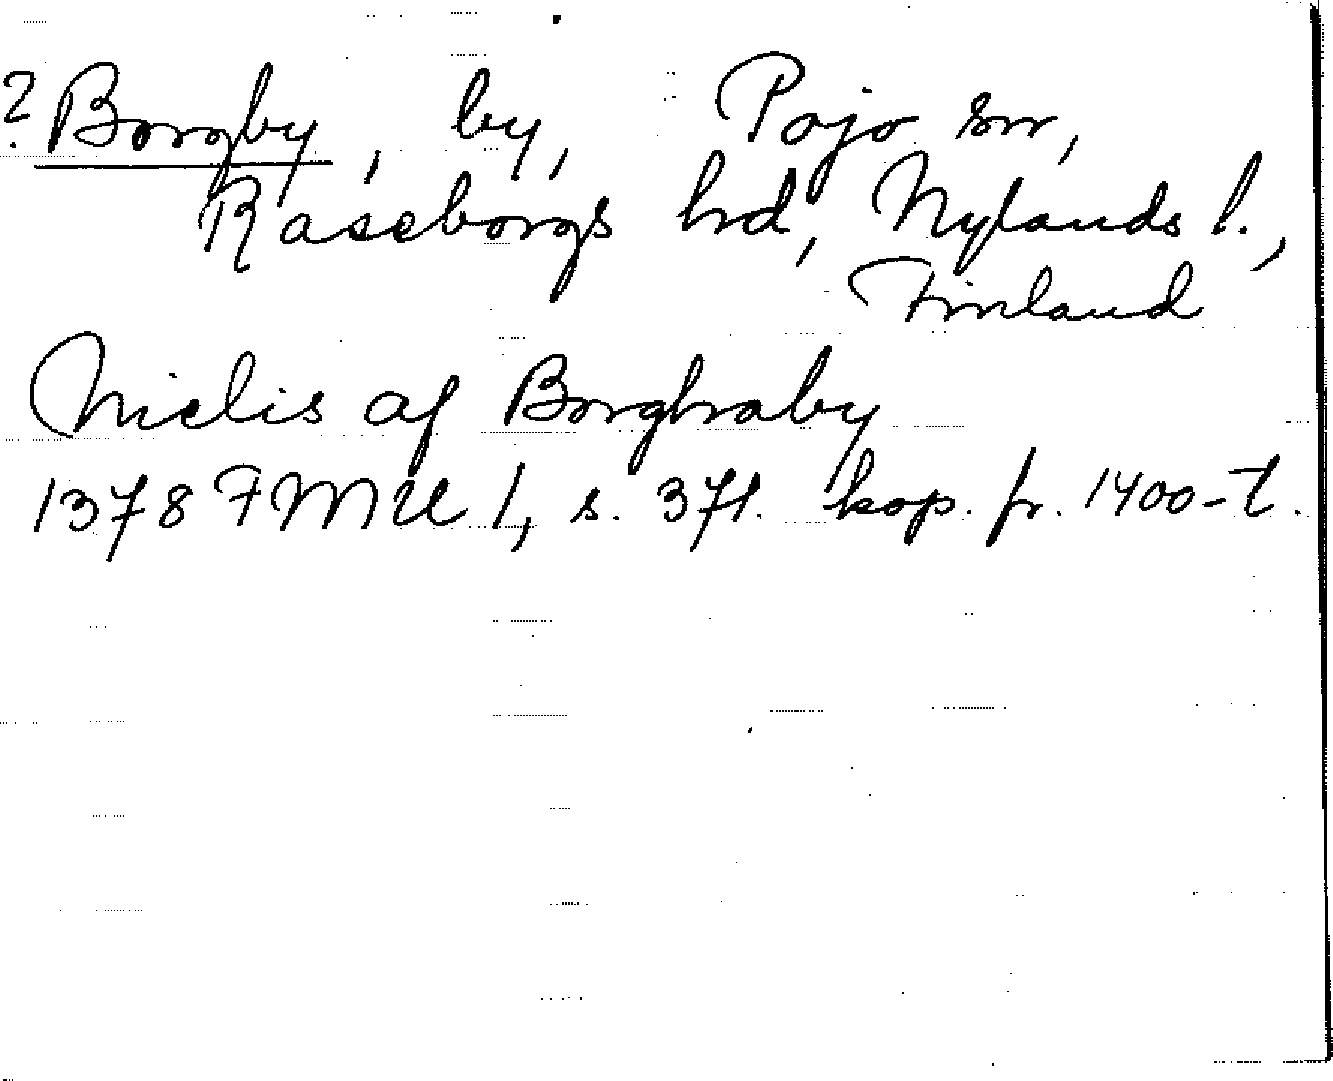 ? Borgby, by, Pojo sn,
Raseborgs hd, Nylands l.,
Finland
Nielis af Borghraby
1378 FMU 1, s. 371. kop. fr. 1400-t.